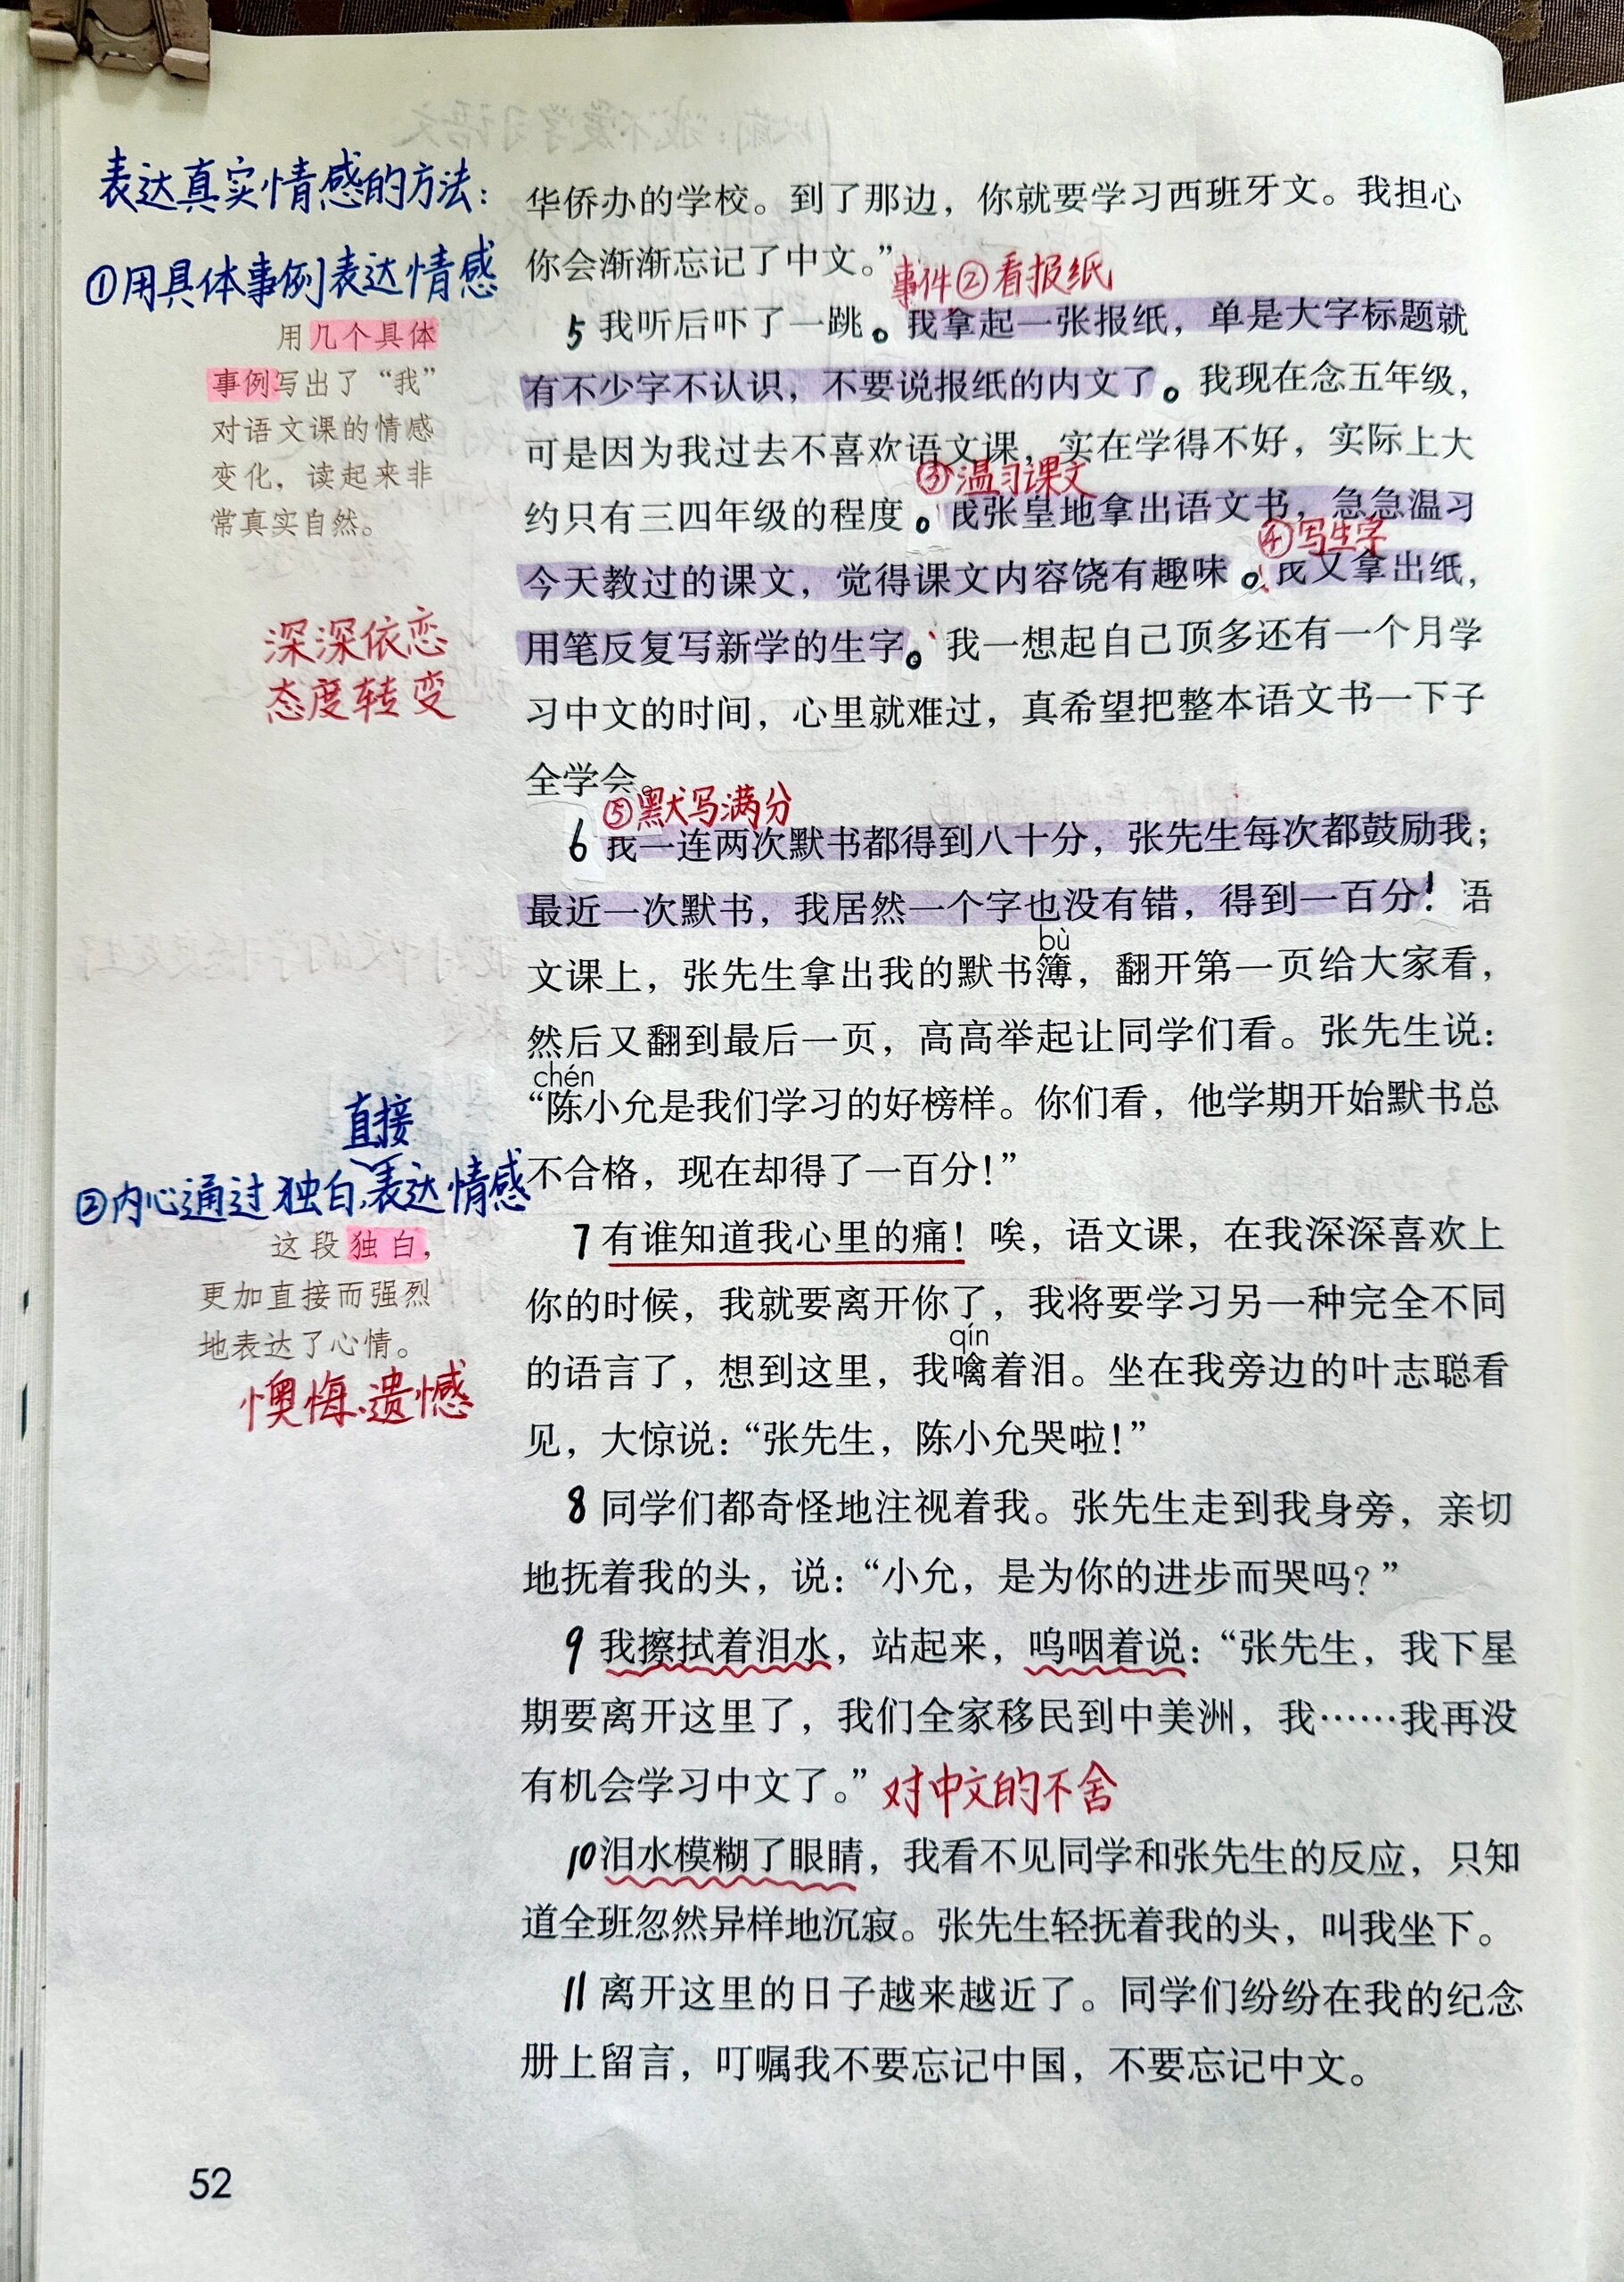 表达真实情感的方法：
①用具体事例表达情感
用几个具体
事例写出了“我”
对语文课的情感
变化，读起来非
常真实自然。
深深依恋
态度转变
直接
②内心通过独白，表达情感
这段独白，
更加直接而强烈
地表达了心情。
懊悔、遗憾
华侨办的学校。到了那边，你就要学习西班牙文。我担心
你会渐渐忘记了中文。”
事件②看报纸
5 我听后吓了一跳。我拿起一张报纸，单是大字标题就
有不少字不认识，不要说报纸的内文了。我现在念五年级，
可是因为我过去不喜欢语文课，实在学得不好，实际上大
③温习课文
约只有三四年级的程度。我张皇地拿出语文书，急急温习
④写生字
今天教过的课文，觉得课文内容饶有趣味。我又拿出纸，
用笔反复写新学的生字。我一想起自己顶多还有一个月学
习中文的时间，心里就难过，真希望把整本语文书一下子
全学会。
⑤默写满分
6 我一连两次默书都得到八十分，张先生每次都鼓励我；
最近一次默书，我居然一个字也没有错，得到一百分！语
bù
文课上，张先生拿出我的默书簿，翻开第一页给大家看，
然后又翻到最后一页，高高举起让同学们看。张先生说：
chén
“陈小允是我们学习的好榜样。你们看，他学期开始默书总
不合格，现在却得了一百分！”
7 有谁知道我心里的痛！唉，语文课，在我深深喜欢上
你的时候，我就要离开你了，我将要学习另一种完全不同
qín
的语言了，想到这里，我噙着泪。坐在我旁边的叶志聪看
见，大惊说：“张先生，陈小允哭啦！”
8 同学们都奇怪地注视着我。张先生走到我身旁，亲切
地抚着我的头，说：“小允，是为你的进步而哭吗？”
9 我擦拭着泪水，站起来，呜咽着说：“张先生，我下星
期要离开这里了，我们全家移民到中美洲，我……我再没
有机会学习中文了。” 对中文的不舍
10 泪水模糊了眼睛，我看不见同学和张先生的反应，只知
道全班忽然异样地沉寂。张先生轻抚着我的头，叫我坐下。
11 离开这里的日子越来越近了。同学们纷纷在我的纪念
册上留言，叮嘱我不要忘记中国，不要忘记中文。
52